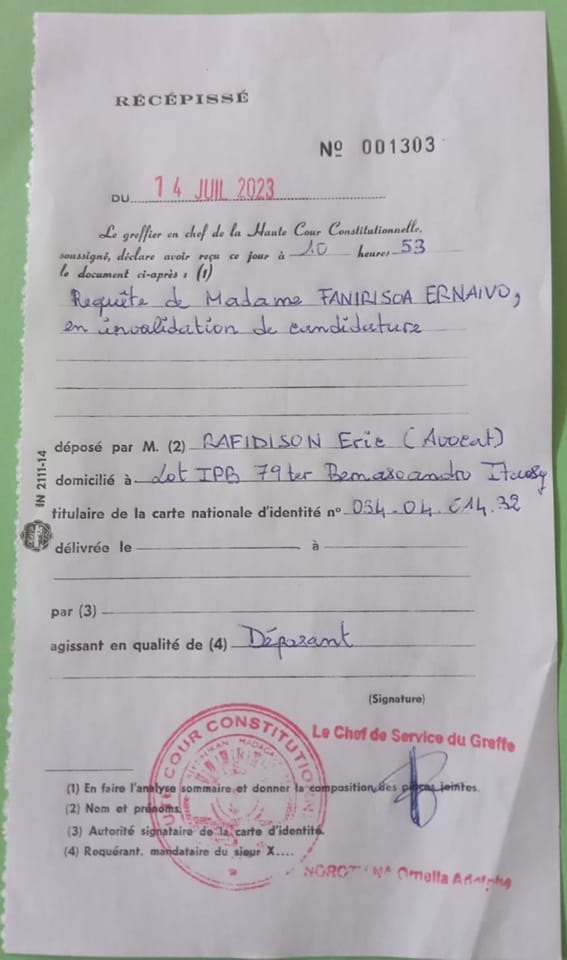 RÉCÉPISSÉ
Nº 001303
DU 14 JUIL 2023
Le greffier en chef de la Haute Cour Constitutionnelle,
soussigné, déclare avoir reçu ce jour à 10 heures 53
le document ci-après : (1)
Requête de Madame FANIRISOA ERNAIVO,
en invalidation de candidature
déposé par M. (2) RAFIDISON Eric (Avocat)
domicilié à Lot IPB 79 ter Bemasoandro Itaosy
titulaire de la carte nationale d'identité nº 034.04.614.32
délivrée le à
par (3)
agissant en qualité de (4) Déposant
IN 2111-14
(Signature)
Le Chef de Service du Greffe
HAUTE COUR CONSTITUTIONN
(1) En faire l'analyse sommaire et donner la composition des pièces jointes.
(2) Nom et prénoms.
(3) Autorité signataire de la carte d'identité.
(4) Requérant, mandataire du sieur X....
Ornella